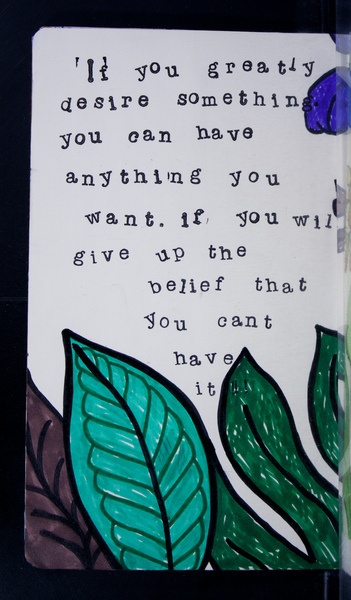 'If you greatly
desire something.
you can have
anything you
want. if, you wil
give up the
belief that
you cant
have
it !!